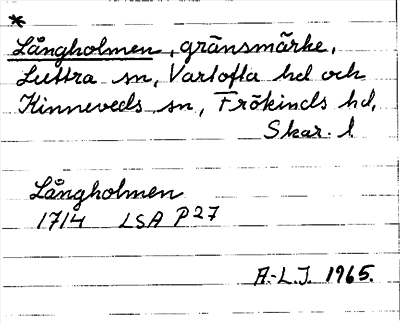 *
Långholmen, gränsmärke,
Luttra sn, Vartofta hd och
Kinneveds sn, Frökinds hd,
Skar. l.
Långholmen
1714 LSA P27
A.-L.J. 1965.